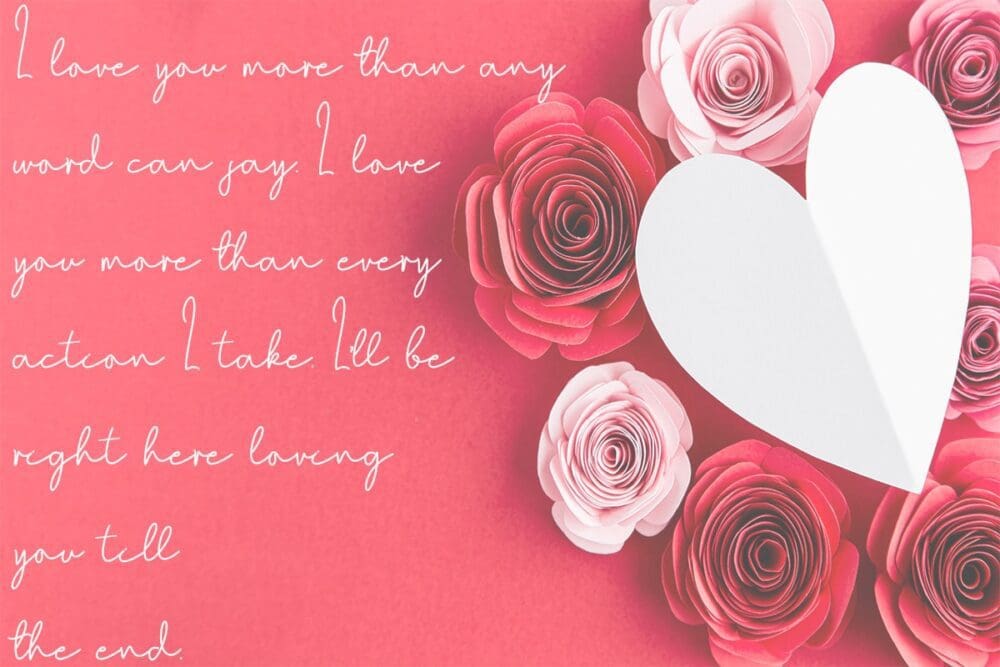 I love you more than any
word can say. I love
you more than every
action I take. I'll be
right here loving
you till
the end.